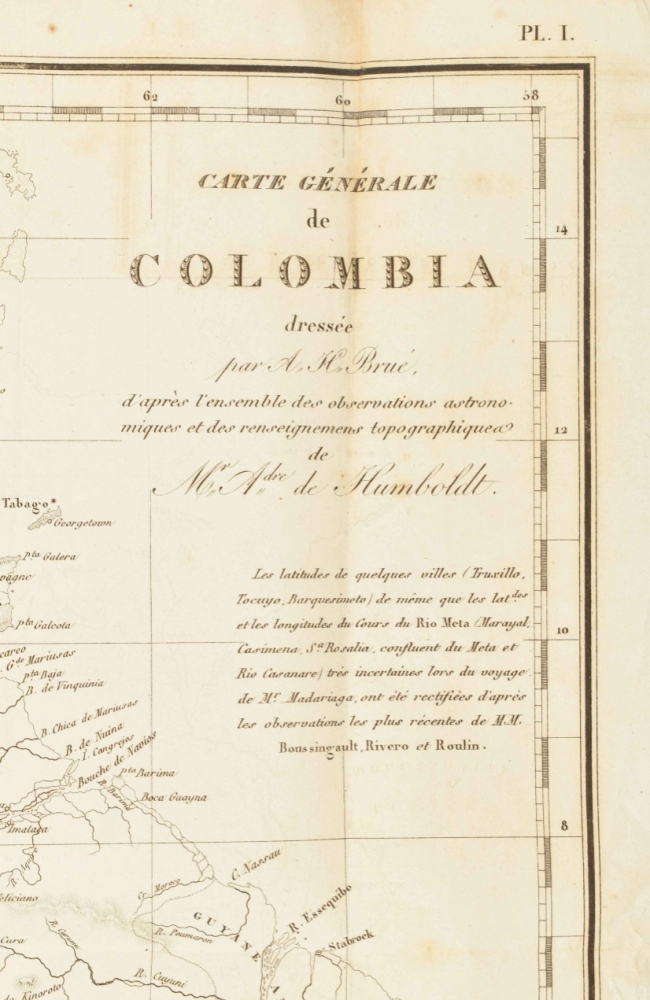 PL. I.
62
60
58
CARTE GÉNÉRALE
de
COLOMBIA
dressée
par A. H. Brué,
d'après l'ensemble des observations astrono-
miques et des renseignemens topographiques
de
Mr. Adre de Humboldt.
14
12
Les latitudes de quelques villes (Truxillo,
Tocuyo, Barquesimeto) de même que les latdes
et les longitudes du Cours du Rio Meta (Marayal,
Casimena, Sta Rosalia, confluent du Meta et
Rio Casanare) très incertaines lors du voyage
de Mr Madariaga, ont été rectifiées d'après
les observations les plus récentes de MM.
Boussingault, Rivero et Roulin.
10
8
Tabago
Georgetown
Pta Galera
Pta Galeota
Gde Mariusas
Pta Baja
B. de Vinquinia
B. Chica de Mariusas
B. de Nuina
I. Congrejos
Bouche de Navios
Pta Barima
R. Barima
Boca Guayna
Imataca
C. Nassau
Cr. Moroco
GUYANE
R. Essequibo
R. Poumaron
Stabroek
Cura
R. Cuyuni